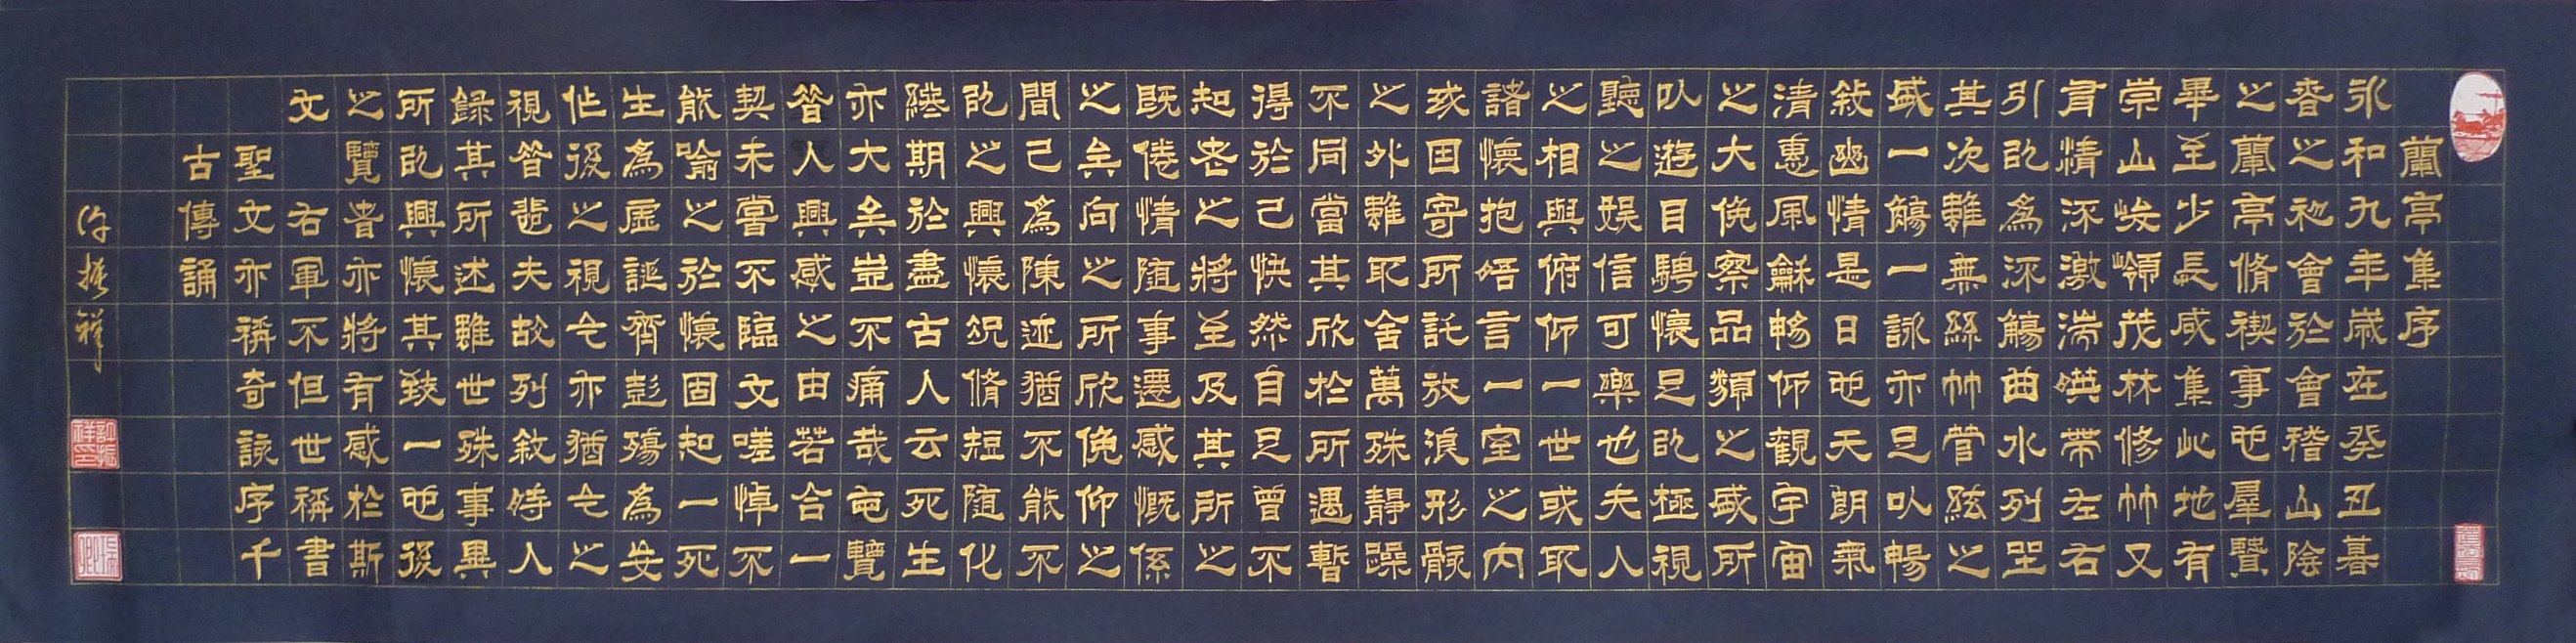 蘭亭集序
永和九年歲在癸丑暮
春之初會於會稽山陰
之蘭亭脩禊事也羣賢
畢至少長咸集此地有
崇山峻嶺茂林修竹又
有清流激湍映帶左右
引以為流觴曲水列坐
其次雖無絲竹管絃之
盛一觴一詠亦足以暢
敘幽情是日也天朗氣
清惠風龢暢仰觀宇宙
之大俛察品類之盛所
以遊目騁懷足以極視
聽之娛信可樂也夫人
之相與俯仰一世或取
諸懷抱晤言一室之內
或因寄所託放浪形骸
之外雖取舍萬殊靜躁
不同當其欣於所遇暫
得於己快然自足曾不
知老之將至及其所之
既倦情隨事遷感慨係
之矣向之所欣俛仰之
間已為陳迹猶不能不
以之興懷況脩短隨化
終期於盡古人云死生
亦大矣豈不痛哉每覽
昔人興感之由若合一
契未嘗不臨文嗟悼不
能喻之於懷固知一死
生為虛誕齊彭殤為妄
作後之視今亦猶今之
視昔悲夫故列敘時人
錄其所述雖世殊事異
所以興懷其致一也後
之覽者亦將有感於斯
文 右軍不但世稱書
聖文亦稱奇詠序千
古傳誦
許振祥
許振祥印
瑞卿